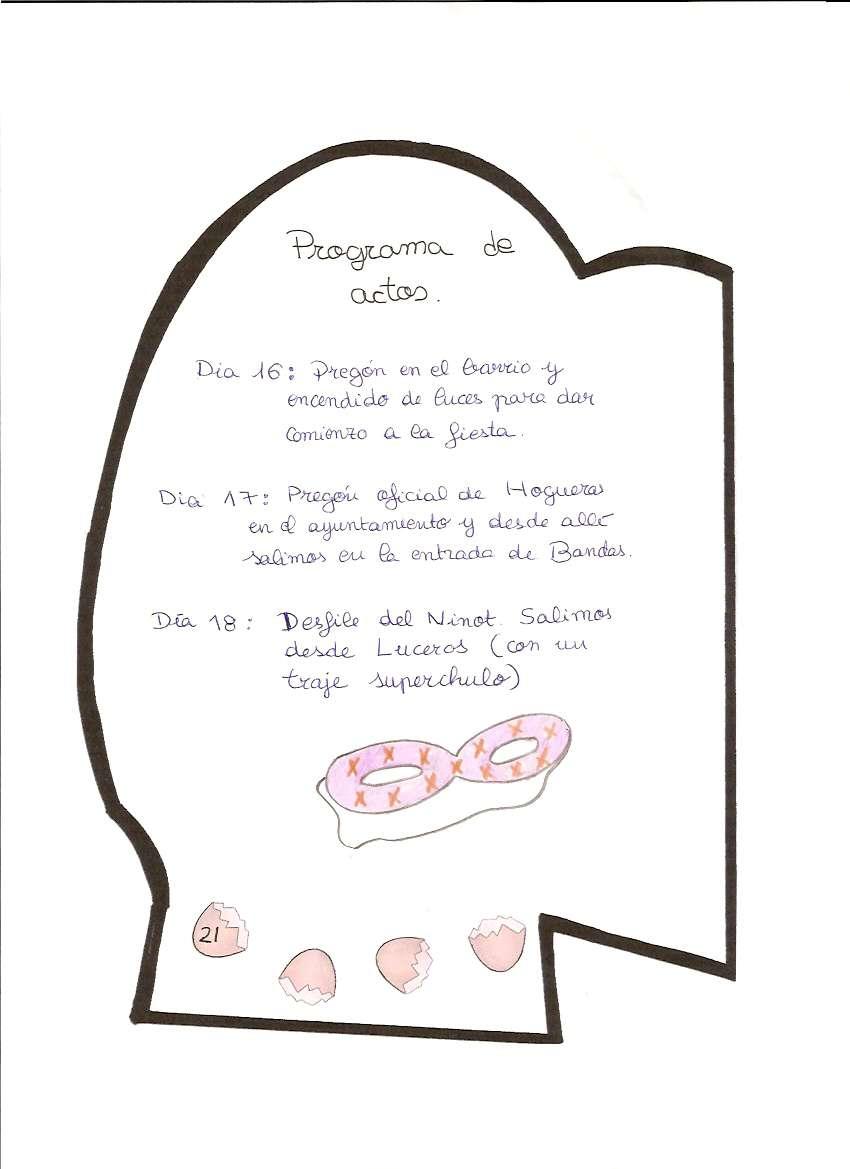 Programa de
actos.
Dia 16: Pregón en el barrio y
encendido de luces para dar
comienzo a la fiesta.
Dia 17: Pregón oficial de Hogueras
en el ayuntamiento y desde allí
salimos en la entrada de Bandas.
Día 18: Desfile del Ninot. Salimos
desde Luceros (con un
traje superchulo)
21